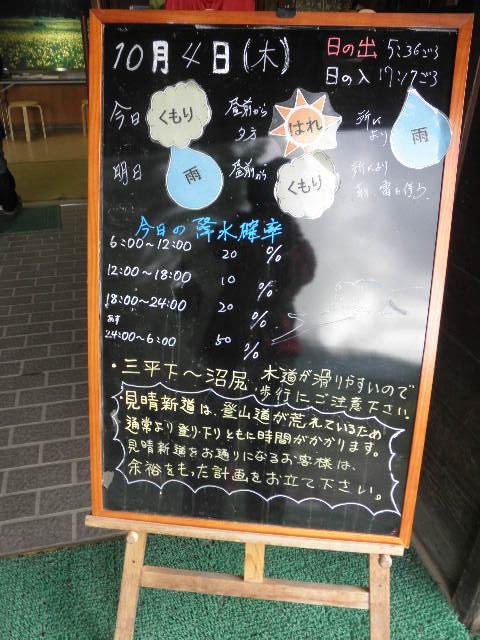 10月4日(木)
日の出 5:36ごろ
日の入 17:17ごろ
今日 くもり 昼前から夕方 はれ 所により 雨
明日 雨 昼前から くもり 所により
雨、雷を伴う
今日の降水確率
6:00〜12:00 20 %
12:00〜18:00 10 %
18:00〜24:00 20 %
あす
24:00〜6:00 50 %
・三平下〜沼尻 木道が滑りやすいので
歩行にご注意下さい。
・見晴新道は、登山道が荒れているため
通常より登り・下りともに時間がかかります。
見晴新道をお通りになるお客様は、
余裕をもった計画をお立て下さい。